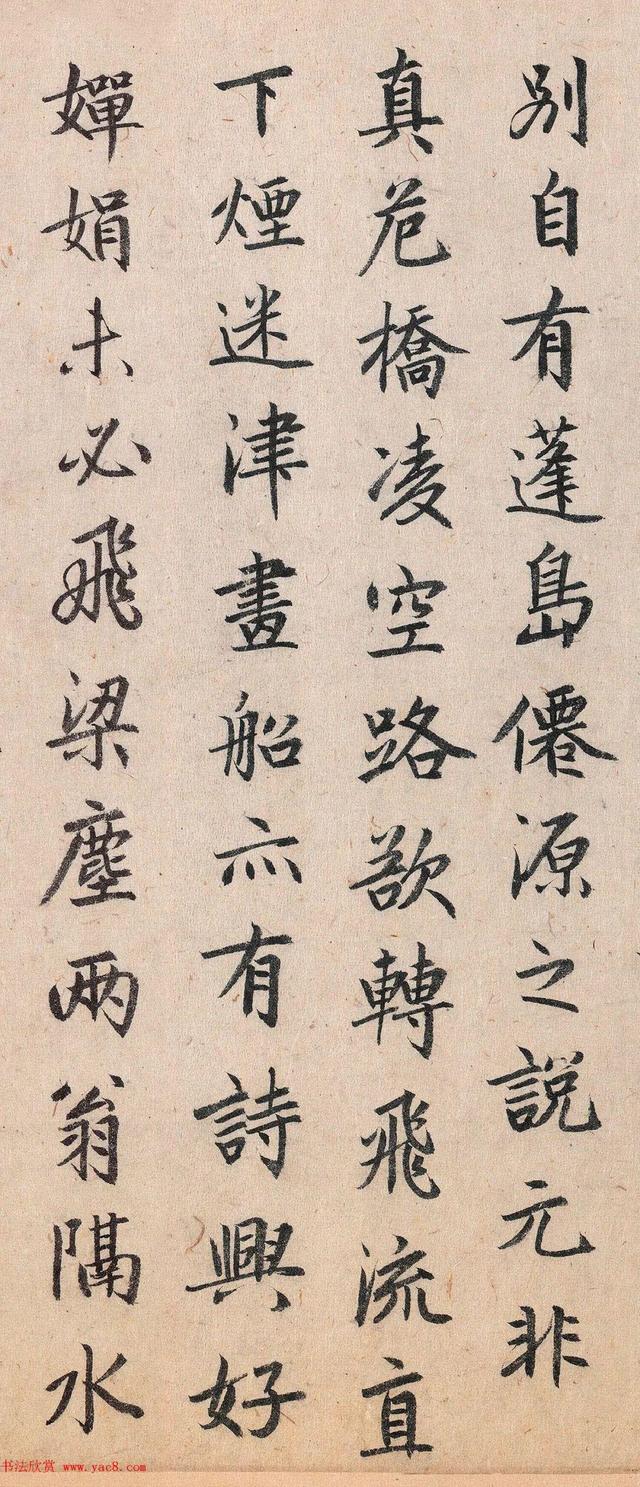 別自有蓬島僊源之說元非
真危橋凌空路欲轉飛流直
下煙迷津畫船亦有詩興好
嬋娟未必飛梁塵兩翁隔水
书法欣赏 www.yac8.com